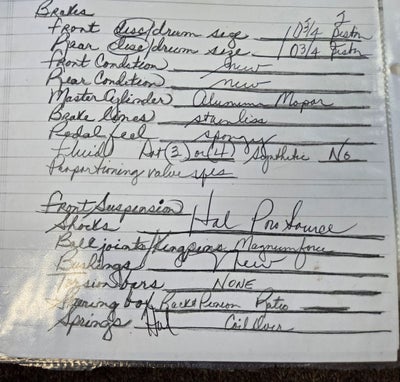 Brakes
Front disc/drum size 10 3/4 2 Piston
Rear disc/drum size 10 3/4 Piston
Front Condition new
Rear Condition new
Master Cylinder Aluminum Mopar
Brake lines stainless
Pedal feel spongy
Fluid Dot (3) or (4) Synthetic No
Proportioning valve
Front Suspension
Shocks Hal Pro Source
Ball joints/Kingpins Magnumforce
Bushings New
Torsion bars NONE
Box Rack & Pinion Ratio
Springs Hal Coil Over